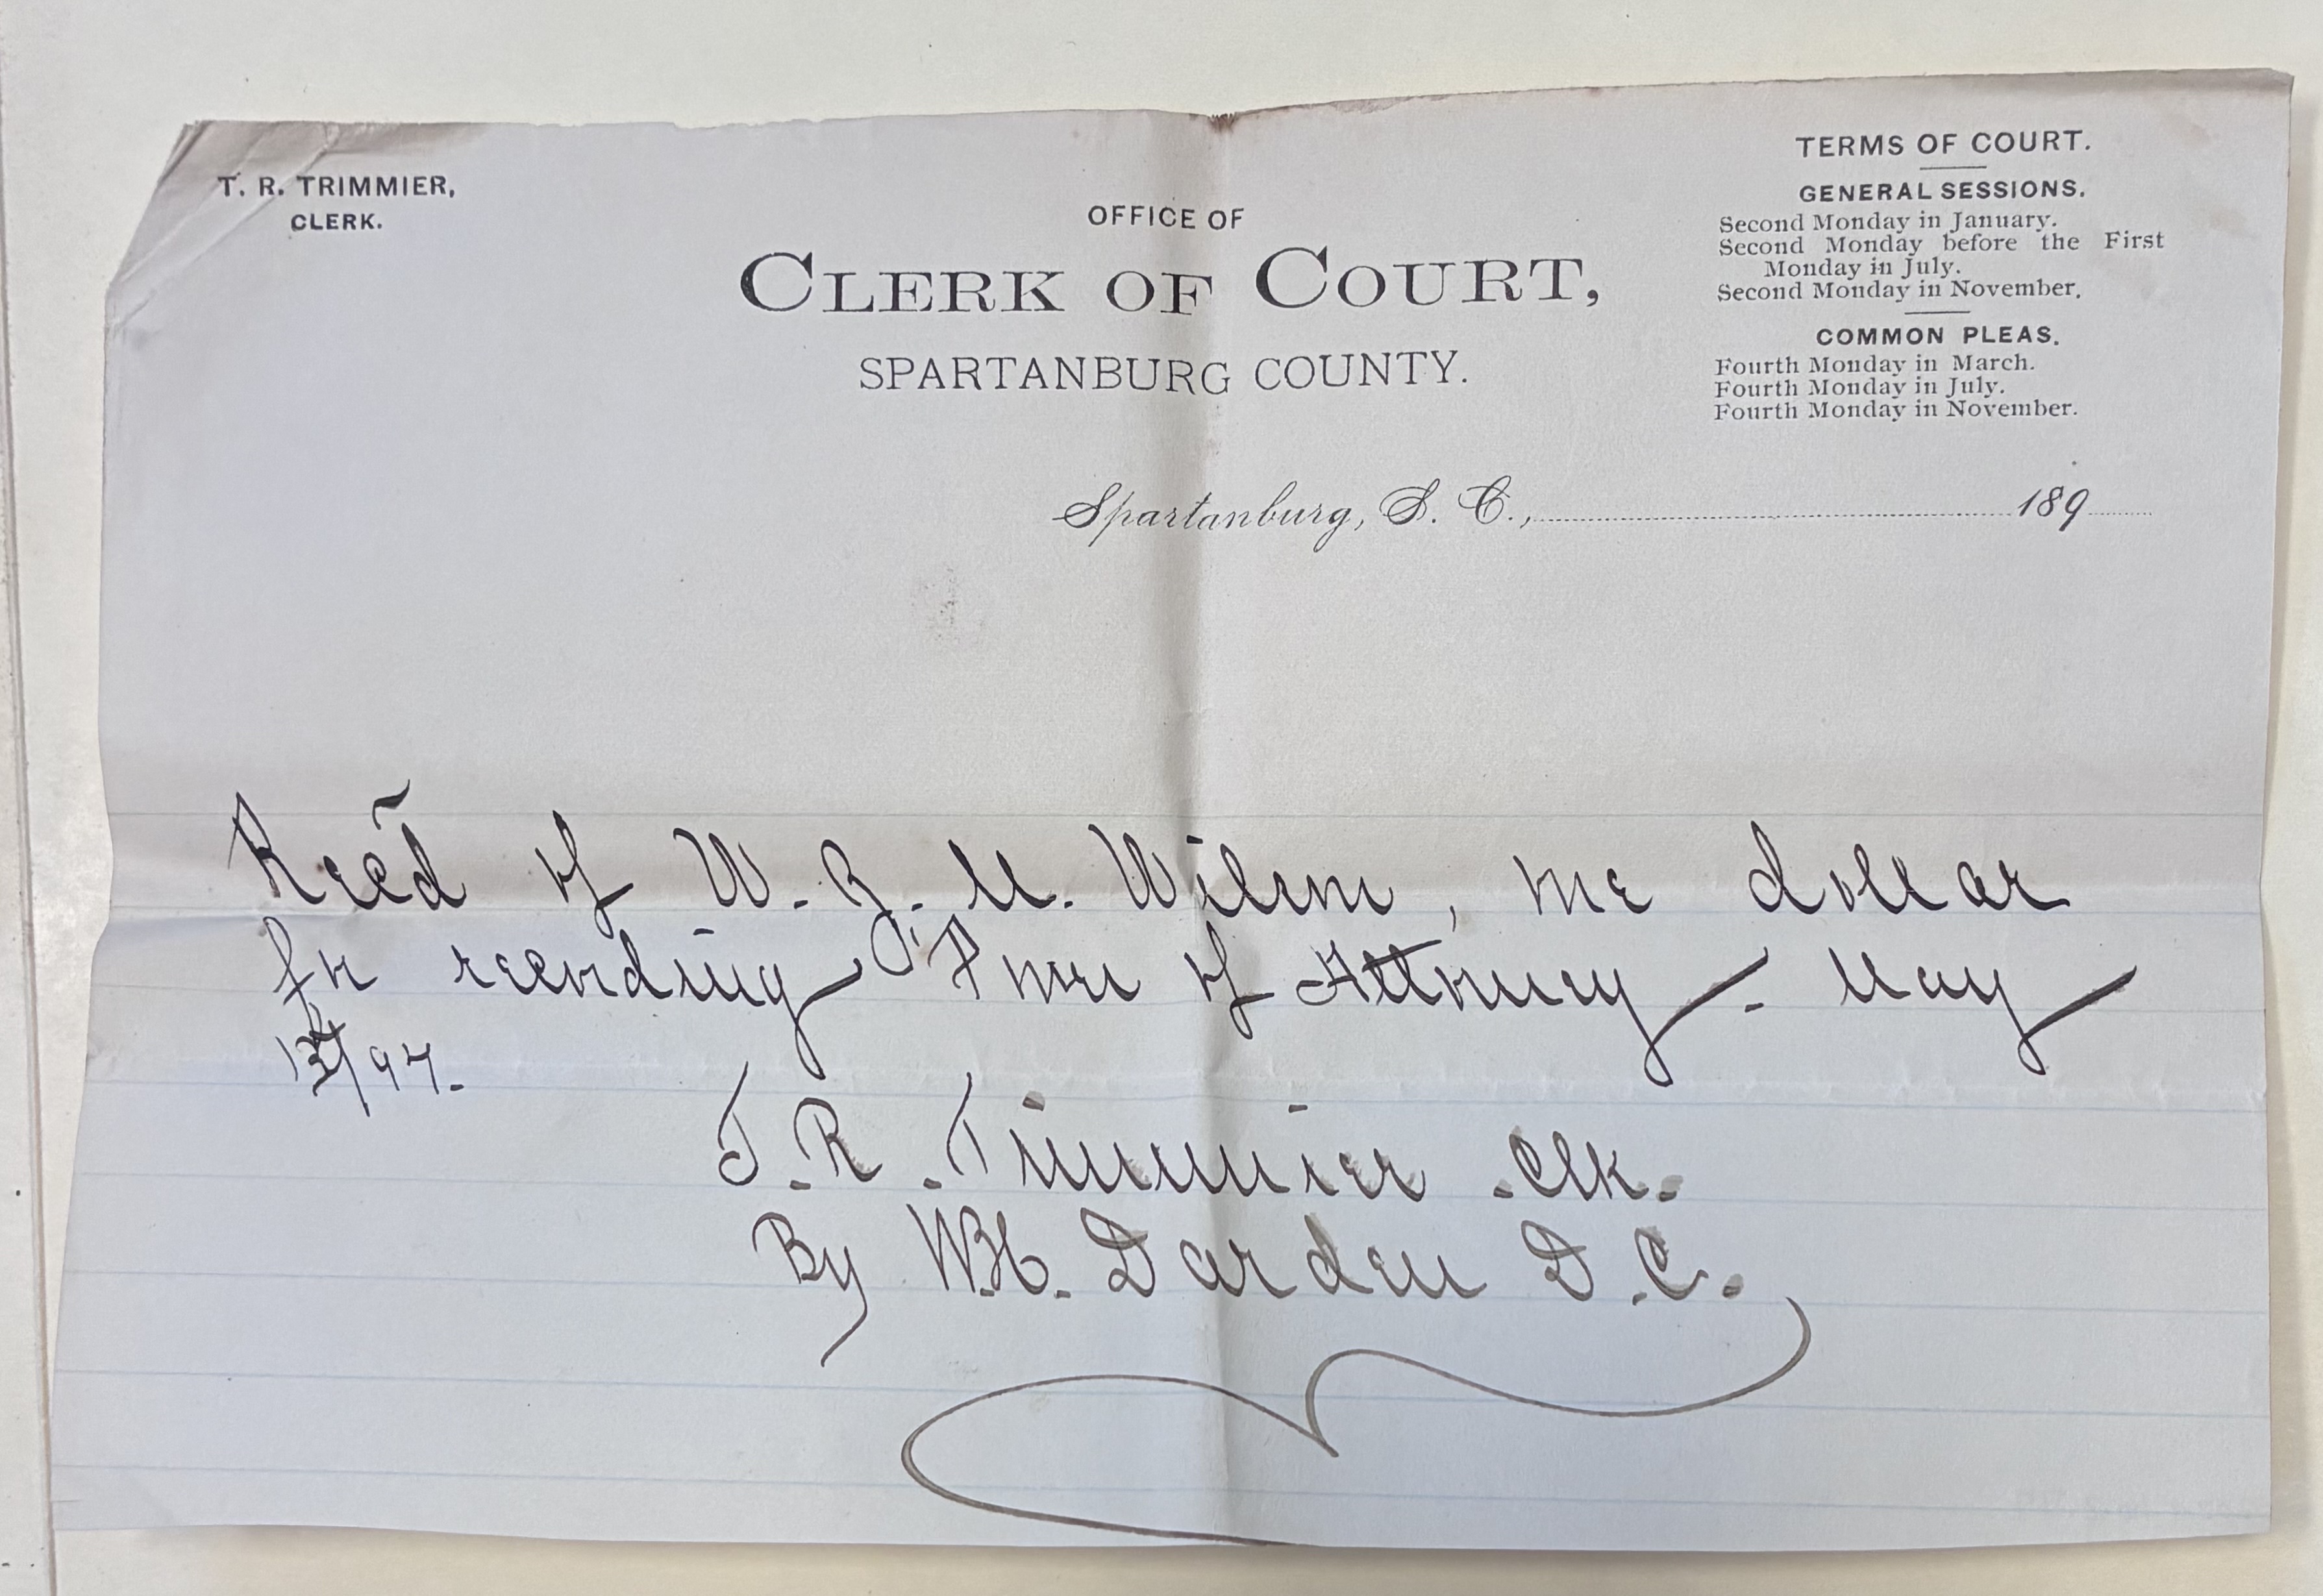 T. R. TRIMMIER,
CLERK.
OFFICE OF
CLERK OF COURT,
SPARTANBURG COUNTY.
TERMS OF COURT.
GENERAL SESSIONS.
Second Monday in January.
Second Monday before the First
Monday in July.
Second Monday in November.
COMMON PLEAS.
Fourth Monday in March.
Fourth Monday in July.
Fourth Monday in November.
Spartanburg, S. C., 189
Recd of W. J. M. Wilson, one dollar
for recording Power of Attorney. May
/97.
T. R. Trimmier Clk.
By W.H. Darden D.C.